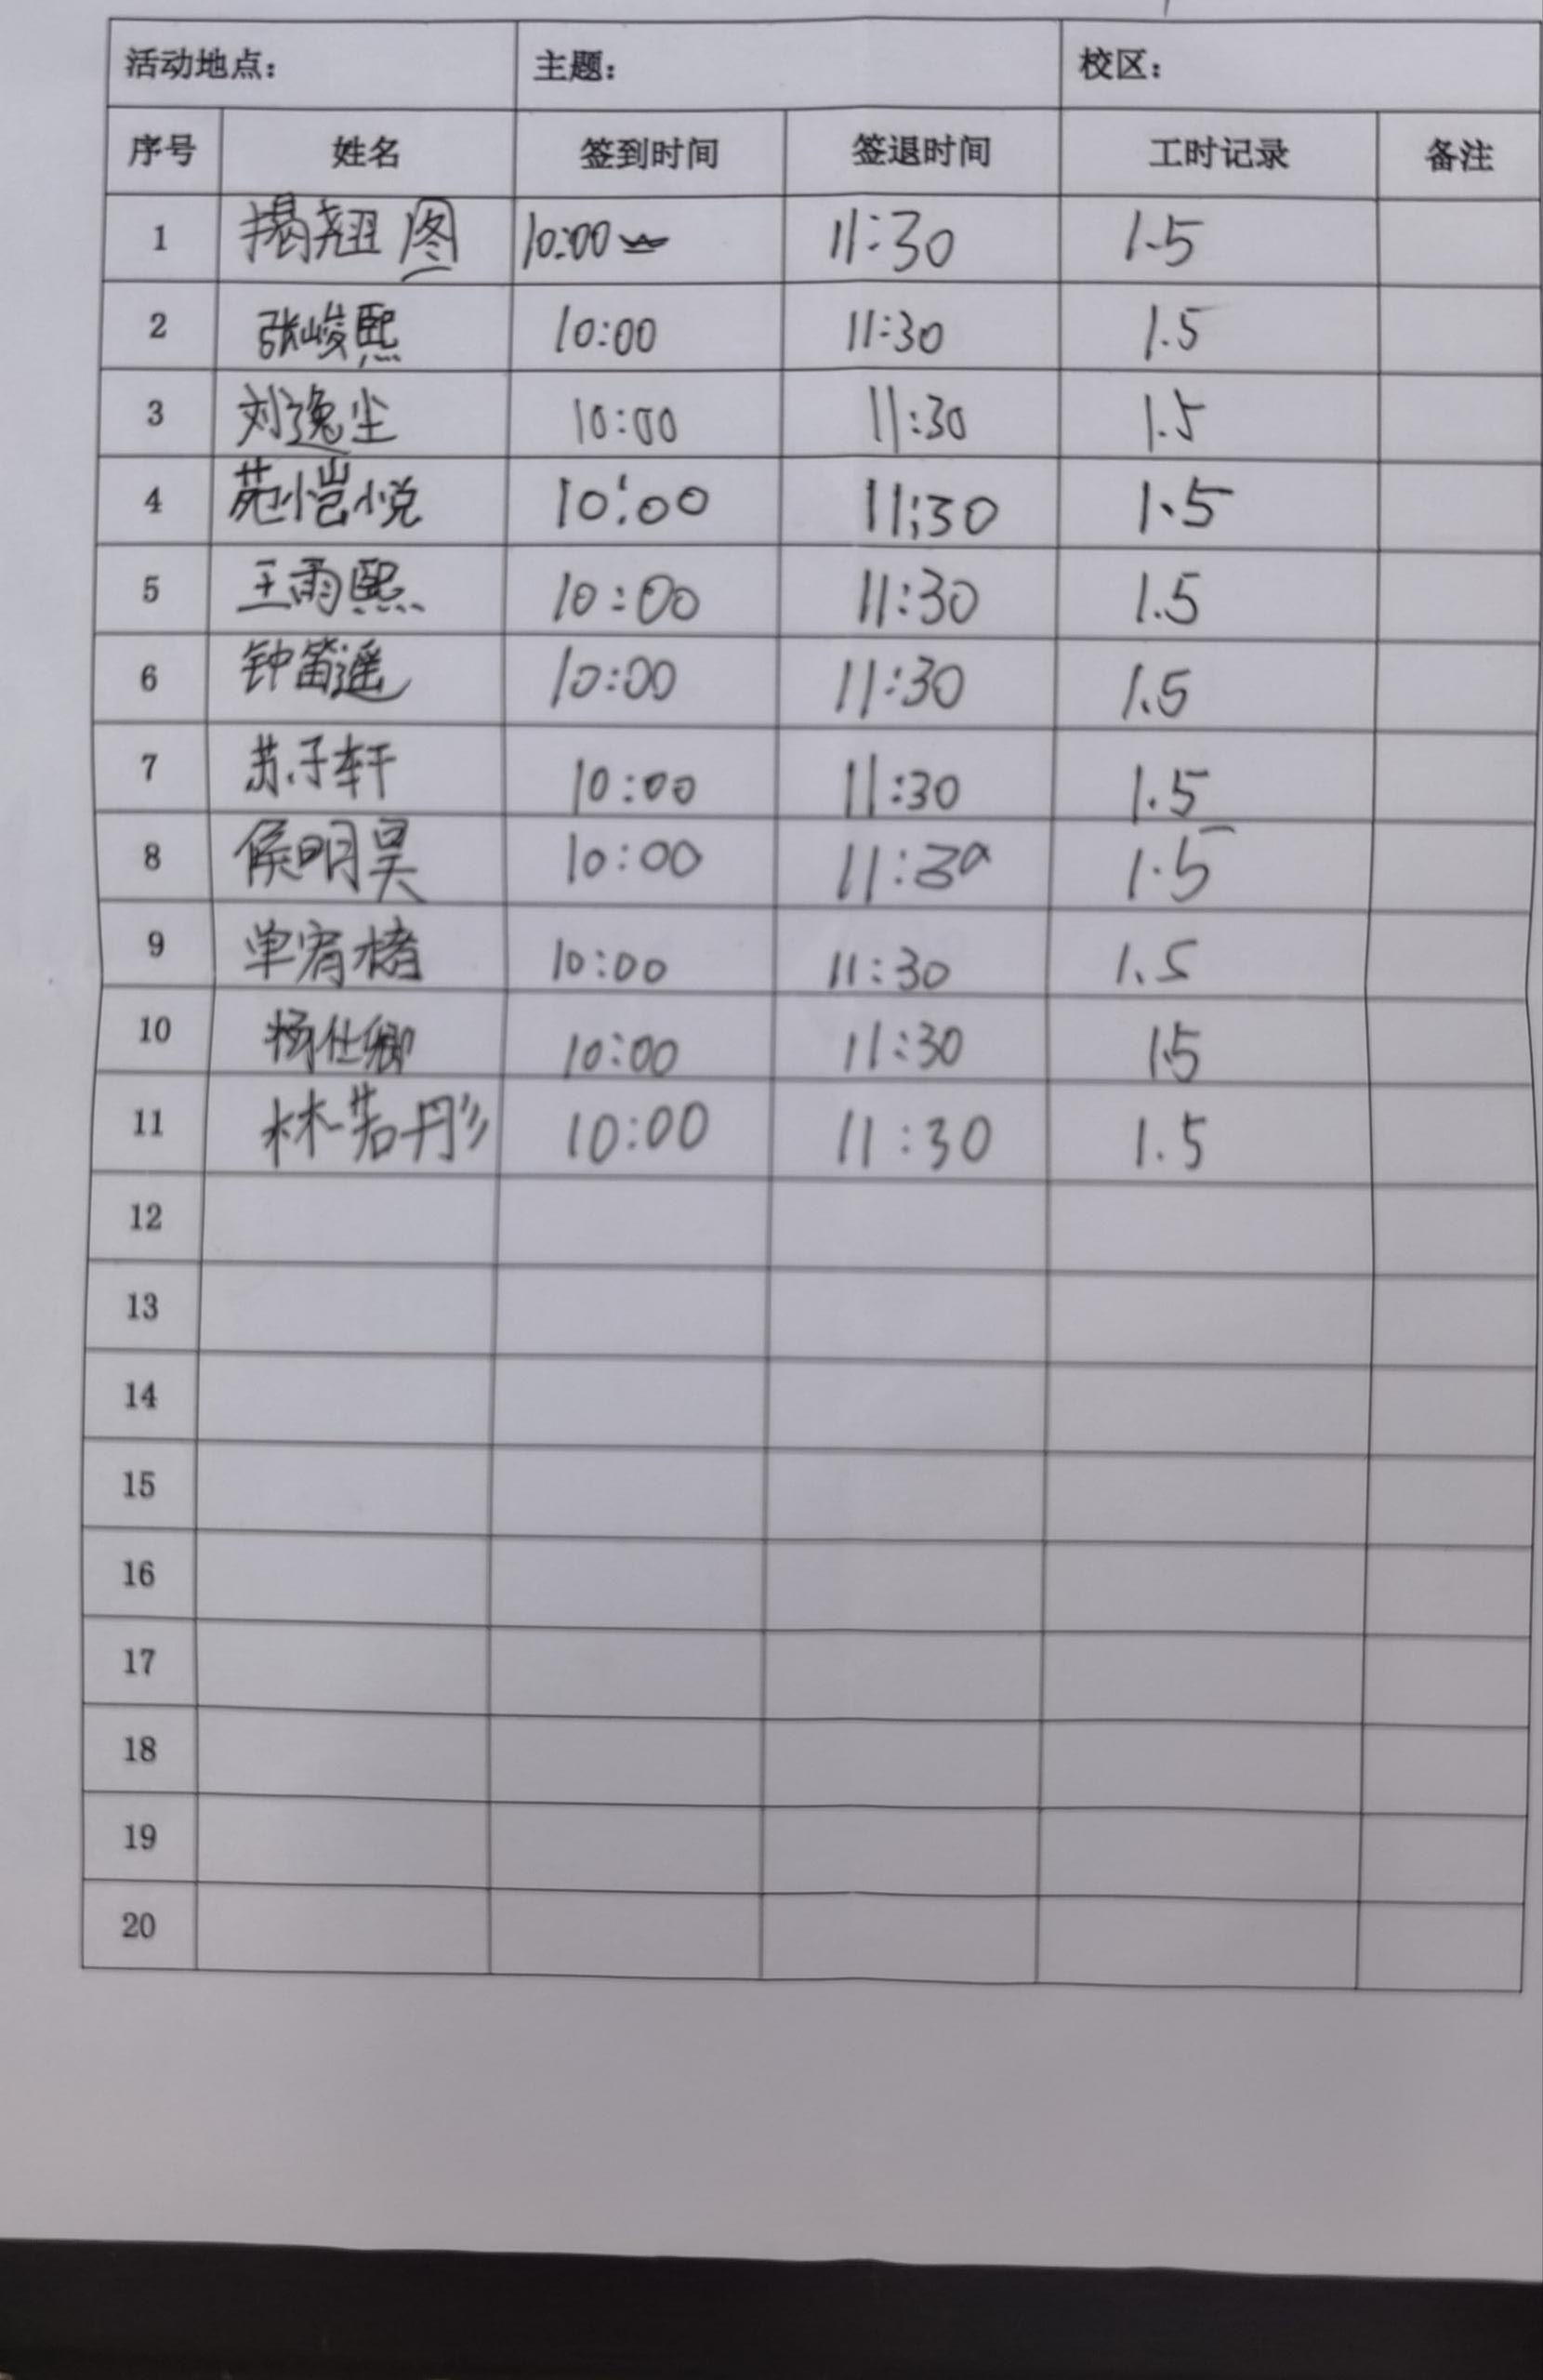 活动地点： 主题： 校区：
序号 姓名 签到时间 签退时间 工时记录 备注
1 揭翘图 10:00 11:30 1.5
2 张峻熙 10:00 11:30 1.5
3 刘逸尘 10:00 11:30 1.5
4 苑恺悦 10:00 11:30 1.5
5 王雨熙 10:00 11:30 1.5
6 钟笛遥 10:00 11:30 1.5
7 苏子轩 10:00 11:30 1.5
8 侯明昊 10:00 11:30 1.5
9 单宥楮 10:00 11:30 1.5
10 杨仕卿 10:00 11:30 1.5
11 林若彤 10:00 11:30 1.5
12
13
14
15
16
17
18
19
20